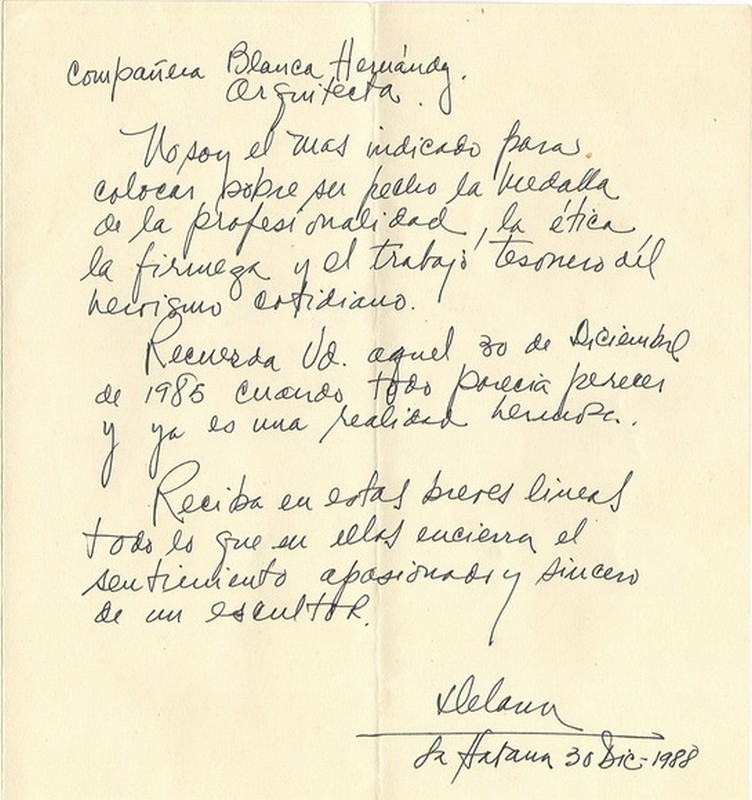 Compañera Blanca Hernández.
Arquitecta.
No soy el mas indicado para
colocar sobre su pecho la medalla
de la profesionalidad, la ética,
la firmeza y el trabajo tesonero del
heroismo cotidiano.
Recuerda Ud. aquel 30 de Diciembre
de 1985 cuando todo parecia perecer
y ya es una realidad hermosa.
Reciba en estas breves lineas
todo lo que en ellas encierra el
sentimiento apasionado y sincero
de un escultor.
Delarra
La Habana 30 Dic-1988